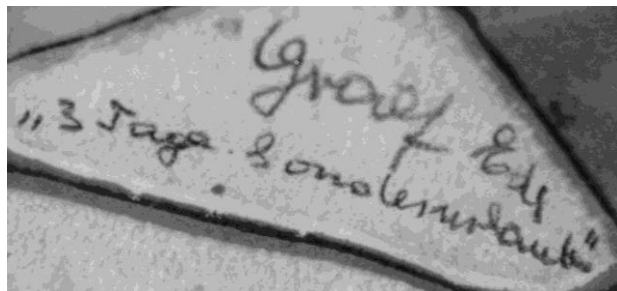 Graef Edy
„3 Tage Sonderurlaub"